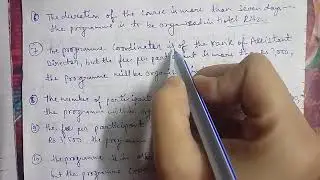 ⑥ The duration of the course is more than seven days—
the programme is to be organised in Hotel Ritz.
⑦ The programme coordinator is of the rank of Assistant
Director, but the fee per part is more Rs 3,000,
the programme will be organi
⑧ The number of participa
the programme will be
⑨ The fee per participant
Rs 3,500, the progra
⑩ The programme is to
but the programme coo